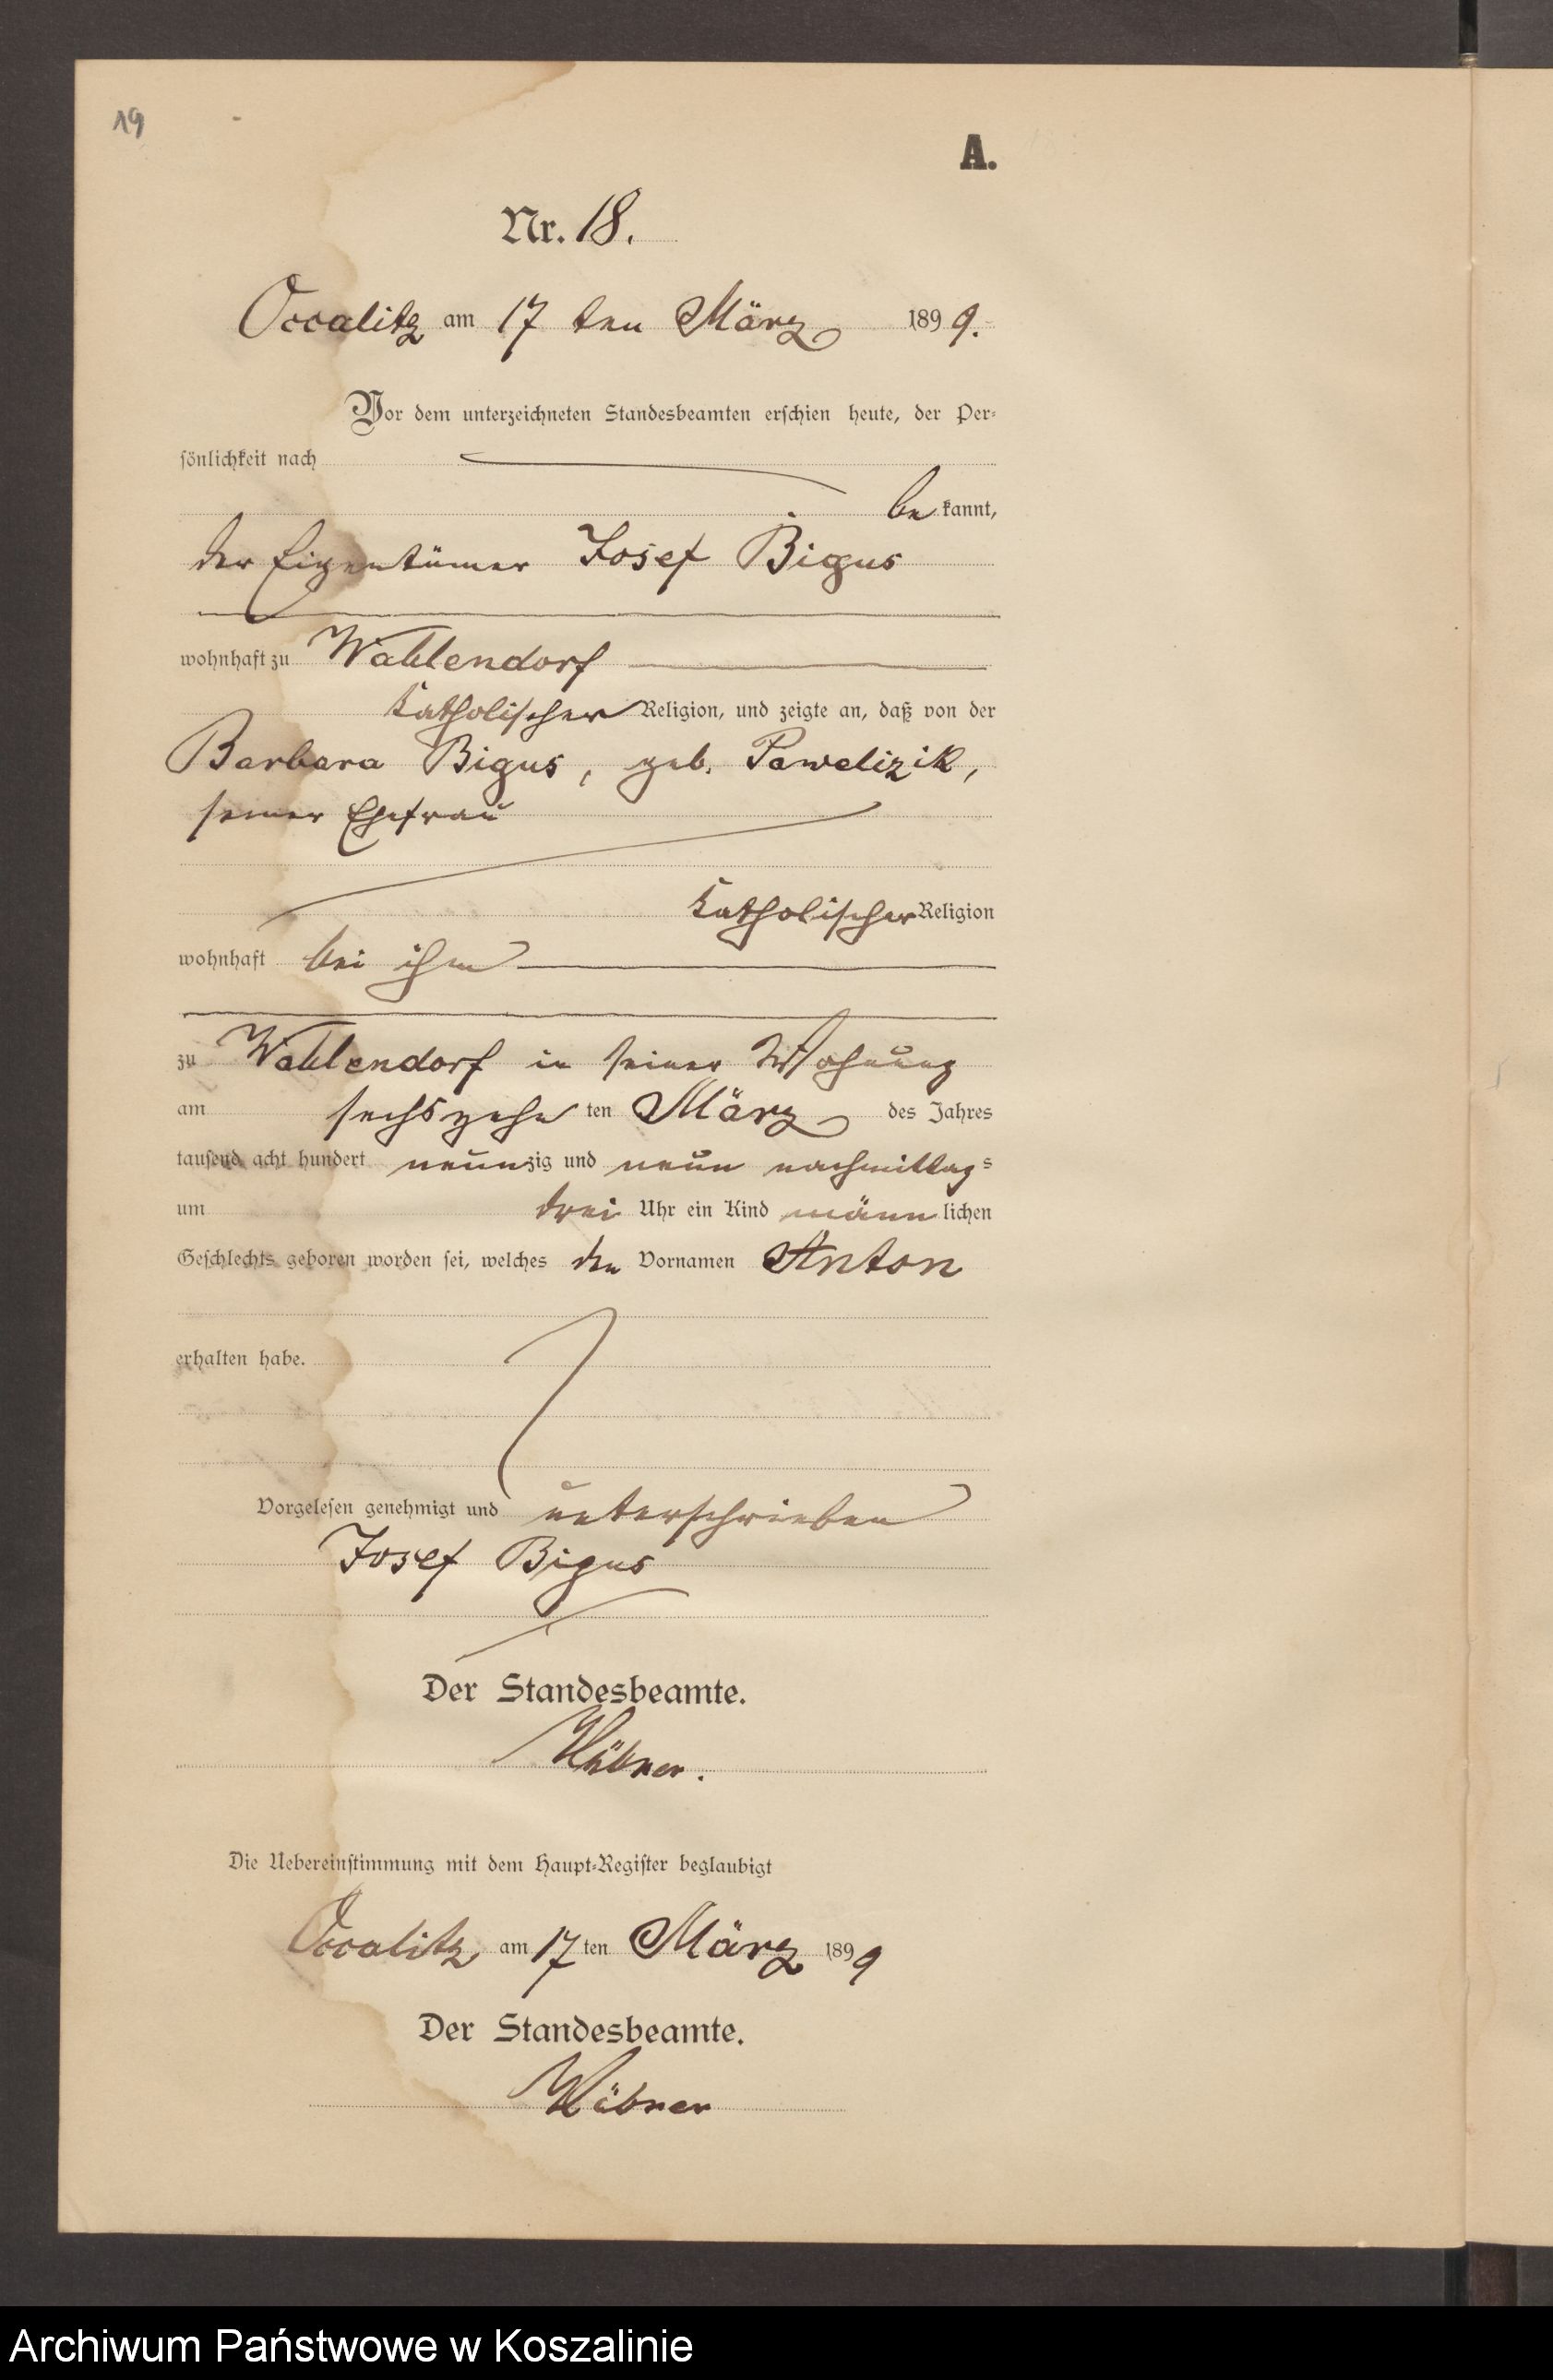 19
A.
Nr. 18.
Occalitz am 17 ten März 1899.
Vor dem unterzeichneten Standesbeamten erschien heute, der Per-
sönlichkeit nach
be kannt,
der Eigentümer Josef Bigus
wohnhaft zu Wahlendorf
katholischer Religion, und zeigte an, daß von der
Barbara Bigus, geb. Pawelizik,
seiner Ehefrau
katholischer Religion
wohnhaft bei ihm
zu Wahlendorf in seiner Wohnung
am sechszehn ten März des Jahres
tausend acht hundert neunzig und neun nachmittags
um drei Uhr ein Kind männlichen
Geschlechts geboren worden sei, welches den Vornamen Anton
erhalten habe.
Vorgelesen genehmigt und unterschrieben
Josef Bigus
Der Standesbeamte.
Hübner.
Die Uebereinstimmung mit dem Haupt-Register beglaubigt
Occalitz am 17 ten März 1899
Der Standesbeamte.
Hübner
Archiwum Państwowe w Koszalinie